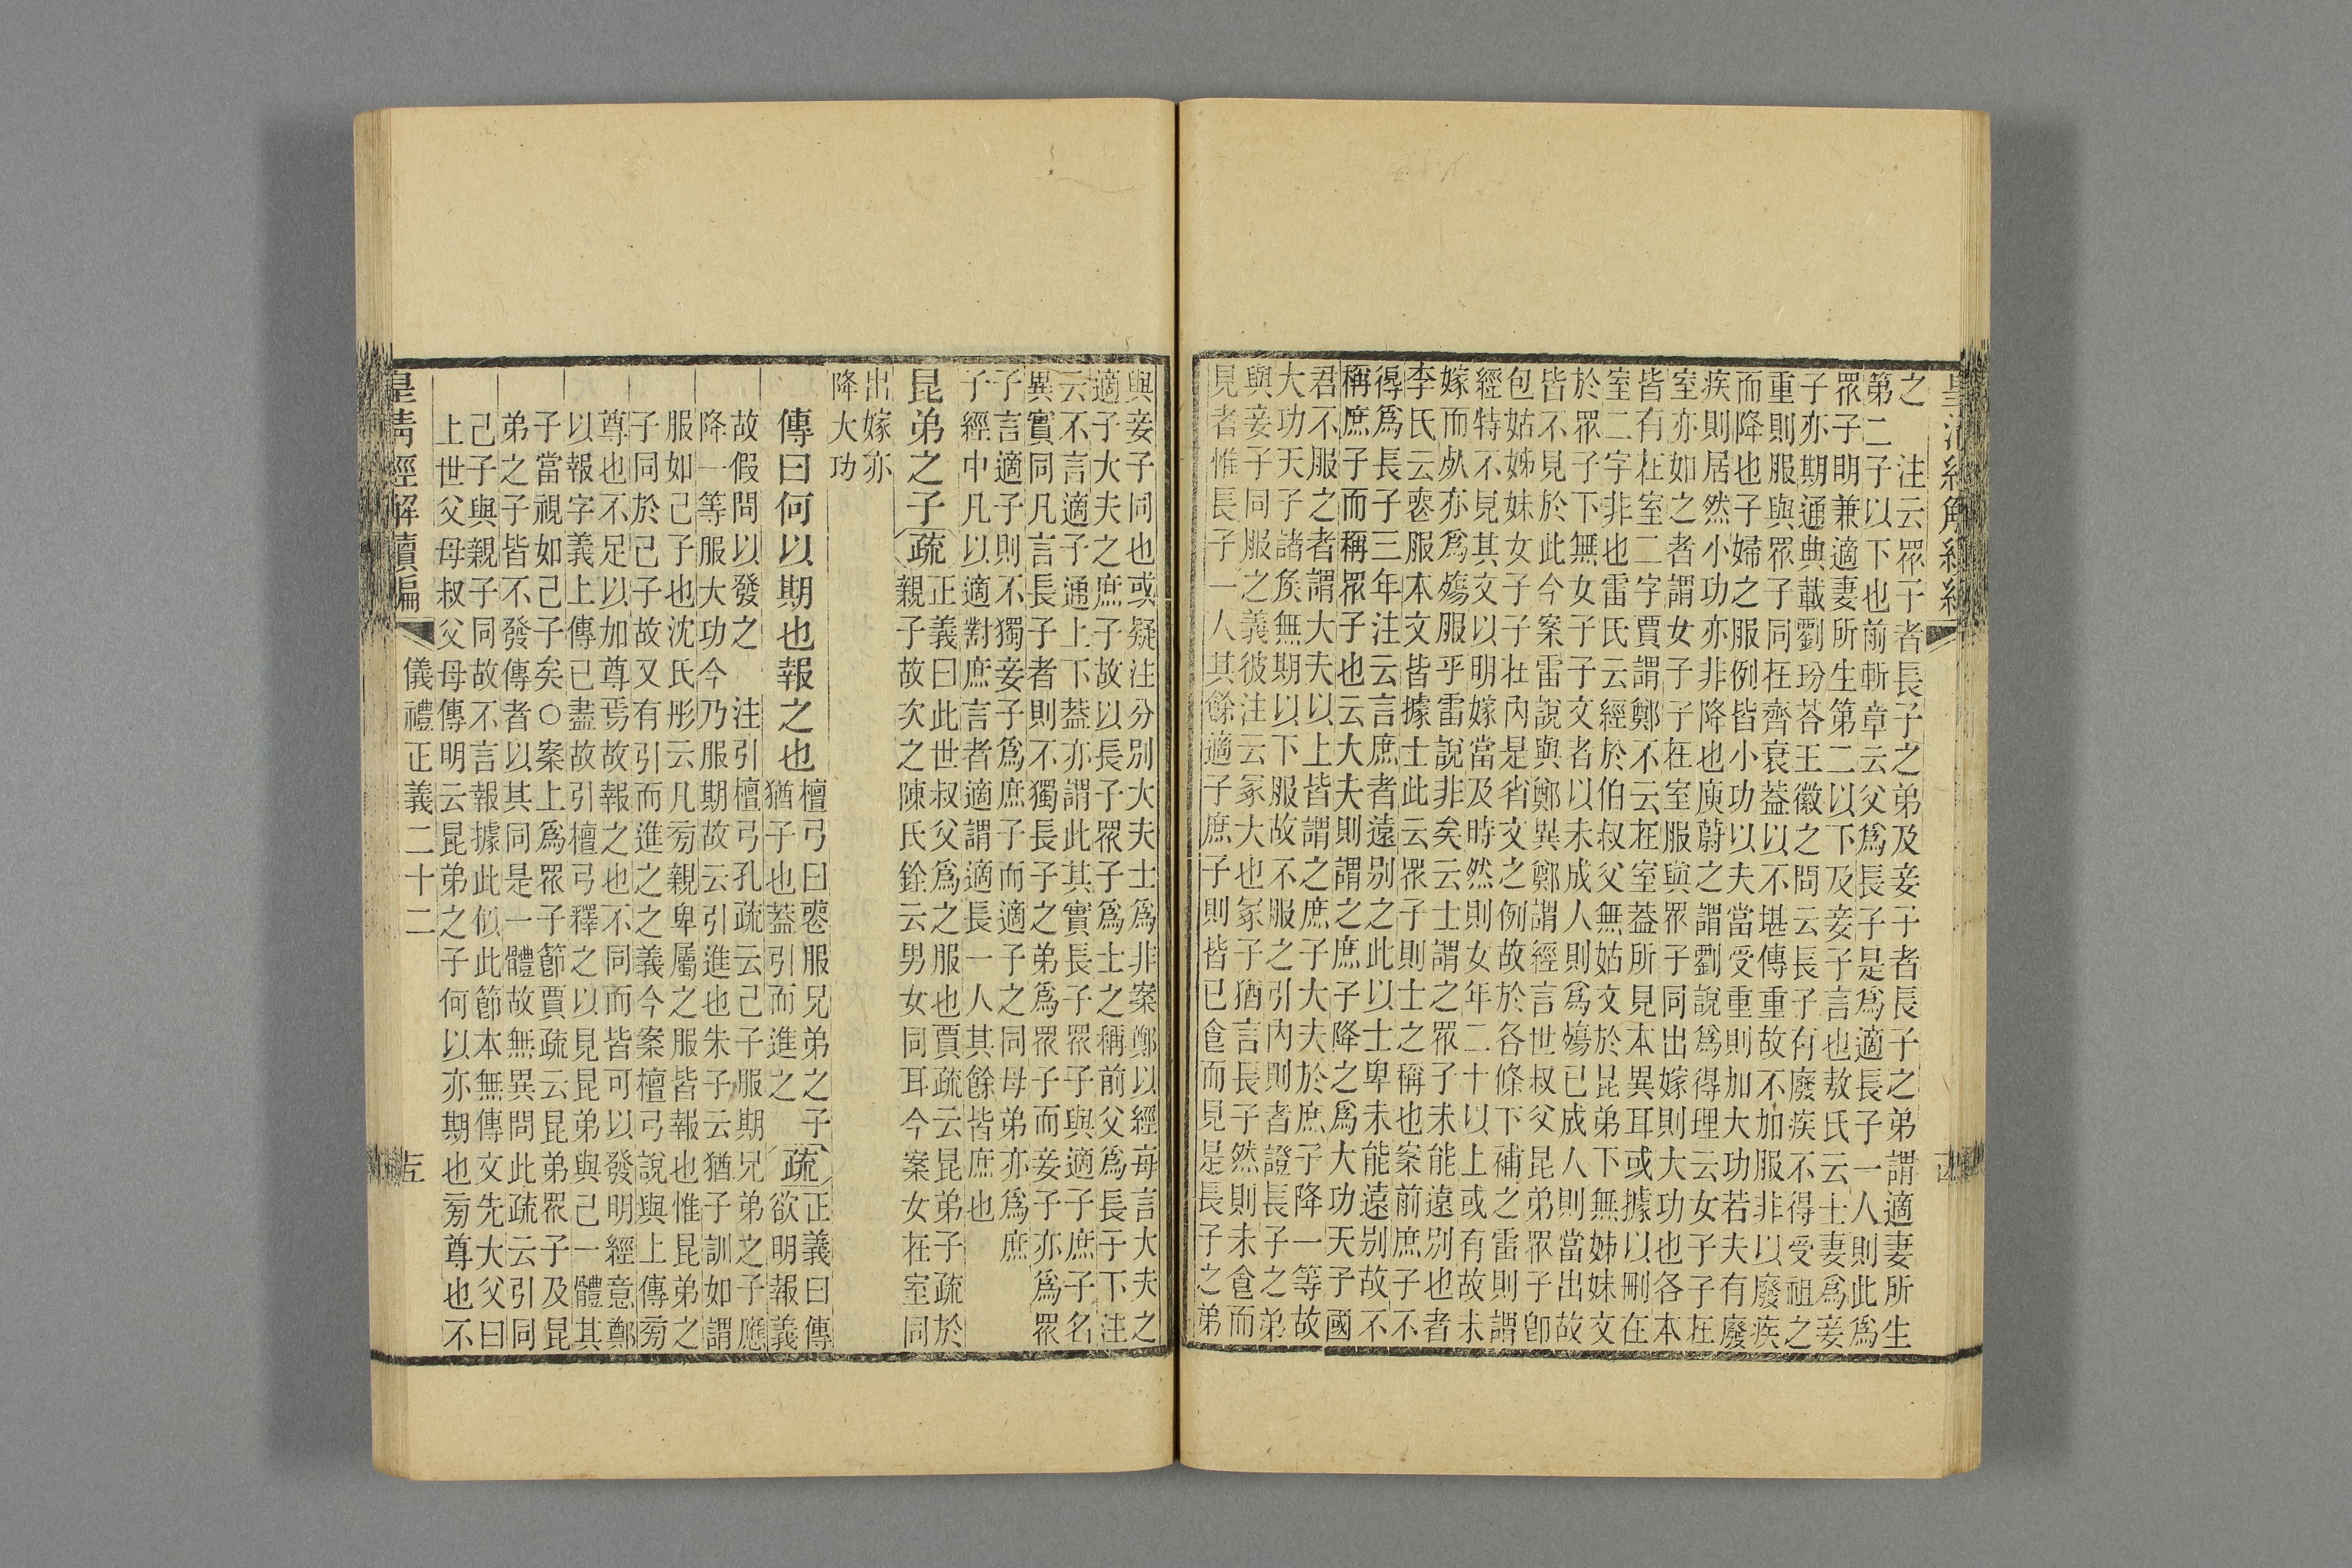 之　注云眾子者長子之弟及妾子者長子之弟謂適妻所生
第二子以下也前斬章云父爲長子是爲適長子一人則此爲
眾子明兼適妻所生第二以下及妾子言也敖氏云士妻爲妾
子亦期通典載劉玢荅王徽之問云長子有廢疾不得受祖之
重則服與眾子同在齊衰葢以不堪傳重故不加服非以廢疾
而降也子婦之服例皆小功以夫當受重則加大功若夫有廢
疾則居然小功亦非降也庾蔚之謂劉說爲得理云女子子在
室亦如之者謂女子子在室服與眾子同出嫁則大功也各本
皆有在室二字賈謂鄭不云在室葢所見本異耳或據以刪在
室二字非也雷氏云經於伯叔父無姑文於昆弟下無姊妹文
於眾子下無女子子文者以未成人則爲殤已成人則當出故
皆不見於此今案雷說與鄭異鄭謂經言世叔父昆弟眾子卽
包姑姊妹女子子在內是省文之例故於各條下補之雷則謂
經特不見其文以明嫁當及時然則女年二十以上或有故未
嫁而㱾亦爲殤服乎雷說非矣云士謂之眾子未能遠別也者
李氏云䘮服本文皆據士此云眾子則士之稱也案前庶子不
得爲長子三年注云言庶者遠別之此以士卑未能遠別故不
稱庶子而稱眾子也云大夫則謂之庶子降之爲大功天子國
君不服之者謂大夫以上皆謂之庶子大夫於庶子降一等故
大功天子諸矦無期以下服故不服之引內則者證長子之弟
與妾子同服之義彼注云冢大也冢子猶言長子然則未食而
見者惟長子一人其餘適子庶子則皆已食而見是長子之弟
與妾子同也或疑注分別大夫士爲非案鄭以經每言大夫之
適子大夫之庶子故以長子眾子爲士之稱前父爲長子下注
云不言適子通上下葢亦謂此其實長子眾子與適子庶子名
異實同凡言長子者則不獨長子之弟爲眾子而妾子亦爲眾
子言適子則不獨妾子爲庶子而適子之同母弟亦爲庶
子經中凡以適對庶言者適謂適長一人其餘皆庶也
昆弟之子疏正義曰此世叔父爲之服也賈疏云昆弟子疏於
親子故次之陳氏銓云男女同耳今案女在室同
出嫁亦
降大功
傳曰何以期也報之也檀弓曰䘮服兄弟之子
猶子也葢引而進之疏正義曰傳
欲明報義
故假問以發之　注引檀弓孔疏云己子服期兄弟之子應
降一等服大功今乃服期故云引進也朱子云猶子訓如謂
服如己子也沈氏彤云凡㫄親卑屬之服皆報也惟昆弟之
子同於己子故又有引而進之之義今案檀弓說與上傳㫄
尊也不足以加尊焉故報之也不同而皆可以發明經意鄭
以報字義上傳已盡故引檀弓釋之以見昆弟與己一體其
子當視如己子矣○案上爲眾子節賈疏云昆弟眾子及昆
弟之子皆不發傳者以其同是一體故無異問此疏云引同
己子與親子同故不言報據此似此節本無傳文先大父曰
上世父母叔父母傳明云昆弟之子何以亦期也㫄尊也不
皇清經解續編　儀禮正義二十二